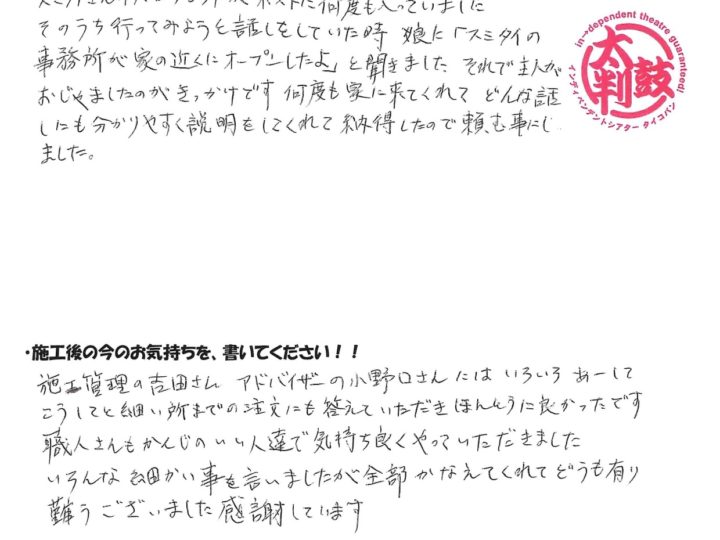 何度も入っていました
そのうち行ってみようと話しをしていた時 娘に「スミタイの
事務所が家の近くにオープンしたよ」と聞きました それで主人が
おじゃましたのがきっかけです 何度も家に来てくれて どんな話
しにも分かりやすく説明をしてくれて 納得したので頼む事にし
ました。
in→dependent theatre guaranteed!
太鼓判
インディペンデントシアター タイコバン
・施工後の今のお気持ちを、書いてください！！
施工管理の吉田さん アドバイザーの小野口さんには いろいろ あーして
こうしてと細い所までの注文にも答えていただき ほんとうに良かったです
職人さんもかんじのいい人達で気持ち良くやっていただきました
いろんな細かい事を言いましたが全部かなえてくれてどうも有り
難うございました 感謝しています